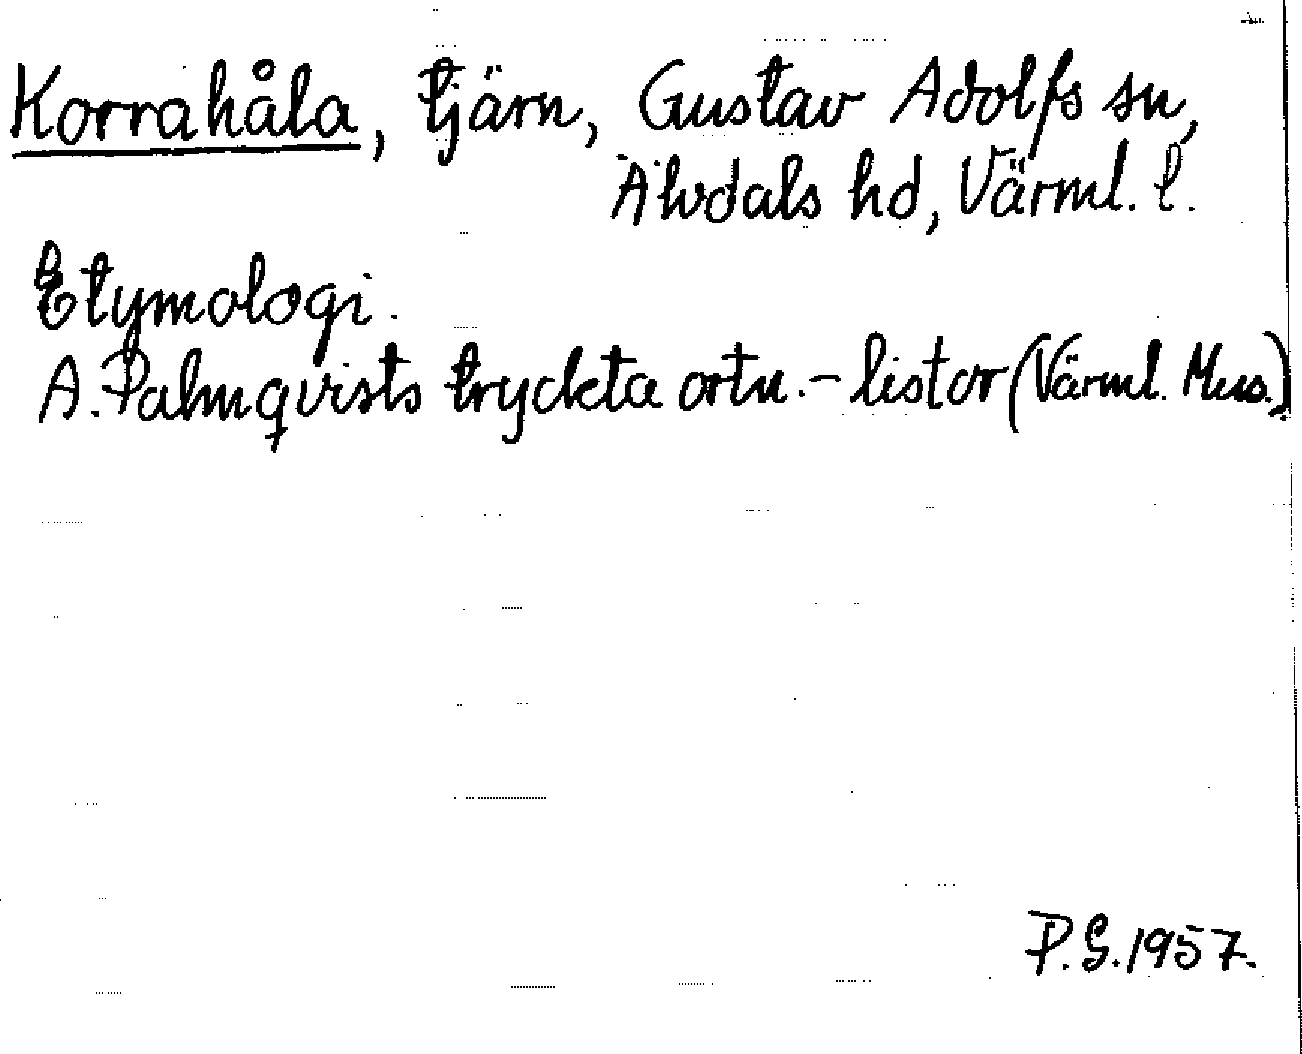 Korrahåla, tjärn, Gustav Adolfs sn,
Älvdals hd, Värml. l.
Etymologi.
A. Palmqvists tryckta ortn.-listor (Värml. Mus.)
P.G. 1957.